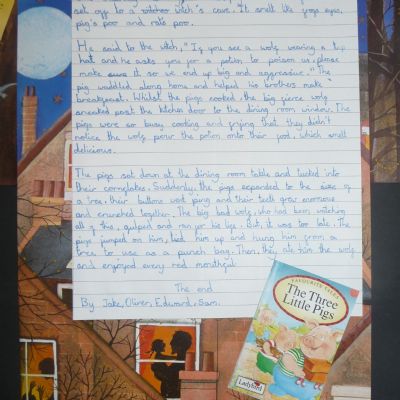 set off to a witches witch's cave. It smelt like frogs eyes,
pig's poo and rats poo.
He said to the witch," If you see a wolf wearing a top
hat and he asks you for a potion to poison us, please
make sure it so we end up big and aggressive." The
pig waddled along home and helped his brothers make
breakfast. Whilst the pigs cooked, the big fierce wolf
sneaked past the kitchen door to the dining room window. The
pigs were so busy cooking and frying that they didn't
notice the wolf pour the potion onto their food, which smelt
delicious.
The pigs sat down at the dining room table and tucked into
their cornflakes. Suddenly, the pigs expanded to the size of
a tree, their buttons went ping and their teeth grew enormous
and crunched together. The big bad wolf, who had been watching
all of this, gulped and ran for his life. But, it was too late. The
pigs jumped on him, tied him up and hung him from a
tree to use as a punch bag. Then, they ate him the wolf
and enjoyed every red mouthful.
The end
By, Jake, Oliver, Edward, Sam.
FAVOURITE TALES
The Three
Little Pigs
Ladybird